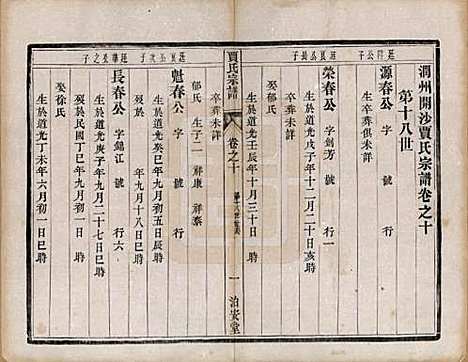 潤州開沙賈氏宗譜卷之十
第十八世
廷祥公子
源春公 字 號 行
生卒葬俱未詳
廷良公長子
榮春公 字劍芳 號 行一
生於道光戊子年十二月二十日亥時
卒葬未詳
娶郁氏
生於道光壬辰年十月三十日 時
卒葬未詳
賈氏宗譜
卷之十
一
治安堂
郁氏 生子二 祥康 祥泰
廷良公次子
魁春公 字 號 行
生於道光癸巳年九月初五日辰時
歿於 年九月十八日 時
廷華公之子
長春公 字錦江 號 行六
生於道光庚子年二月二十七日巳時
歿於民國丁巳年九月初一日 時
娶徐氏
生於道光丁未年六月初一日巳時